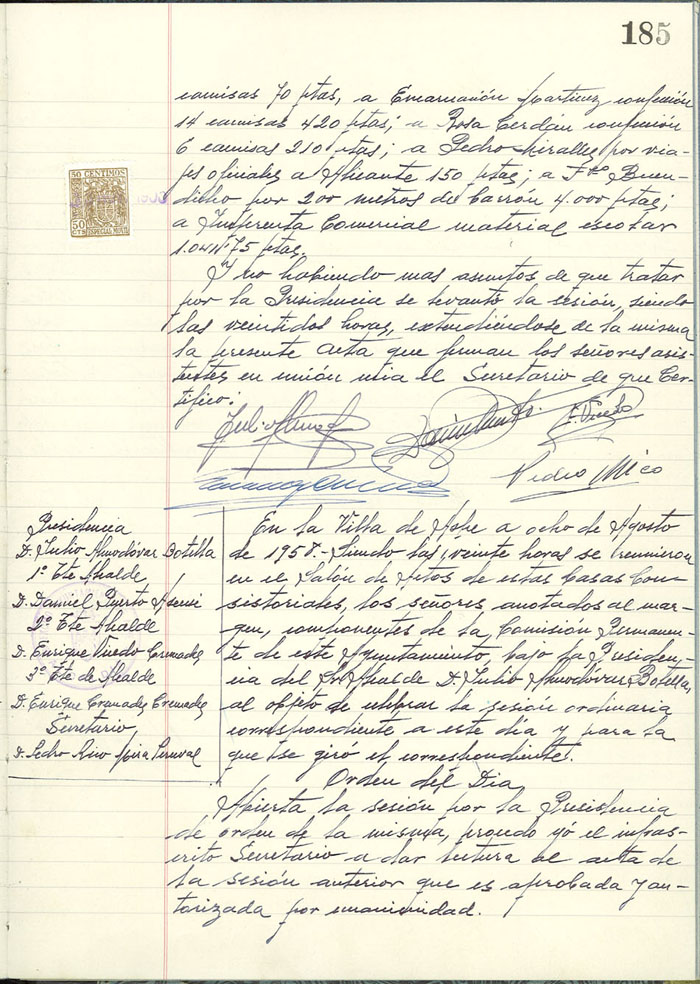 185
camisas 70 ptas, a Encarnación Martinez confección
14 camisas 420 ptas; a Rosa Cerdán confección
6 camisas 210 ptas; a Pedro Miralles por via-
jes oficiales a Alicante 150 ptas; a Fco Buen-
dicho por 200 metros de Carrón 4.000 ptas;
a Imprenta Comercial material escolar
75 ptas.
Y no habiendo mas asuntos de que tratar
por la Presidencia se levantó la sesión, siendo
las veintidos horas, extendiéndose de la misma
la presente acta que firman los señores asis-
tentes en unión mia el Secretario de que Cer-
tifico:
50 CENTIMOS
50 CTS ESPECIAL MOVIL
Pedro Mico
Presidencia
D. Julio Almodóvar Botella
1º Tte Alcalde
D. Daniel Puerto Asensi
2º Tte Alcalde
D. Enrique Pinedo Cremades
3º Tte de Alcalde
D. Enrique Cremades Cremades
Secretario
D. Pedro Mira
En la Villa de Aspe a ocho de Agosto
de 1958.- Siendo las veinte horas se reunieron
en el Salón de Actos de estas Casas Con-
sistoriales, los señores anotados al mar-
gen, componentes de la Comisión Permanen-
te de este Ayuntamiento, bajo la Presiden-
cia del Sr. Alcalde D. Julio Almodóvar Botella,
al objeto de celebrar la sesión ordinaria
correspondiente a este día y para la
que se giró el correspondiente.
Orden del Dia
Abierta la sesión por la Presidencia
de orden de la misma, procedo yó el infras-
crito Secretario a dar lectura al acta de
la sesión anterior que es aprobada y au-
torizada por unanimidad.